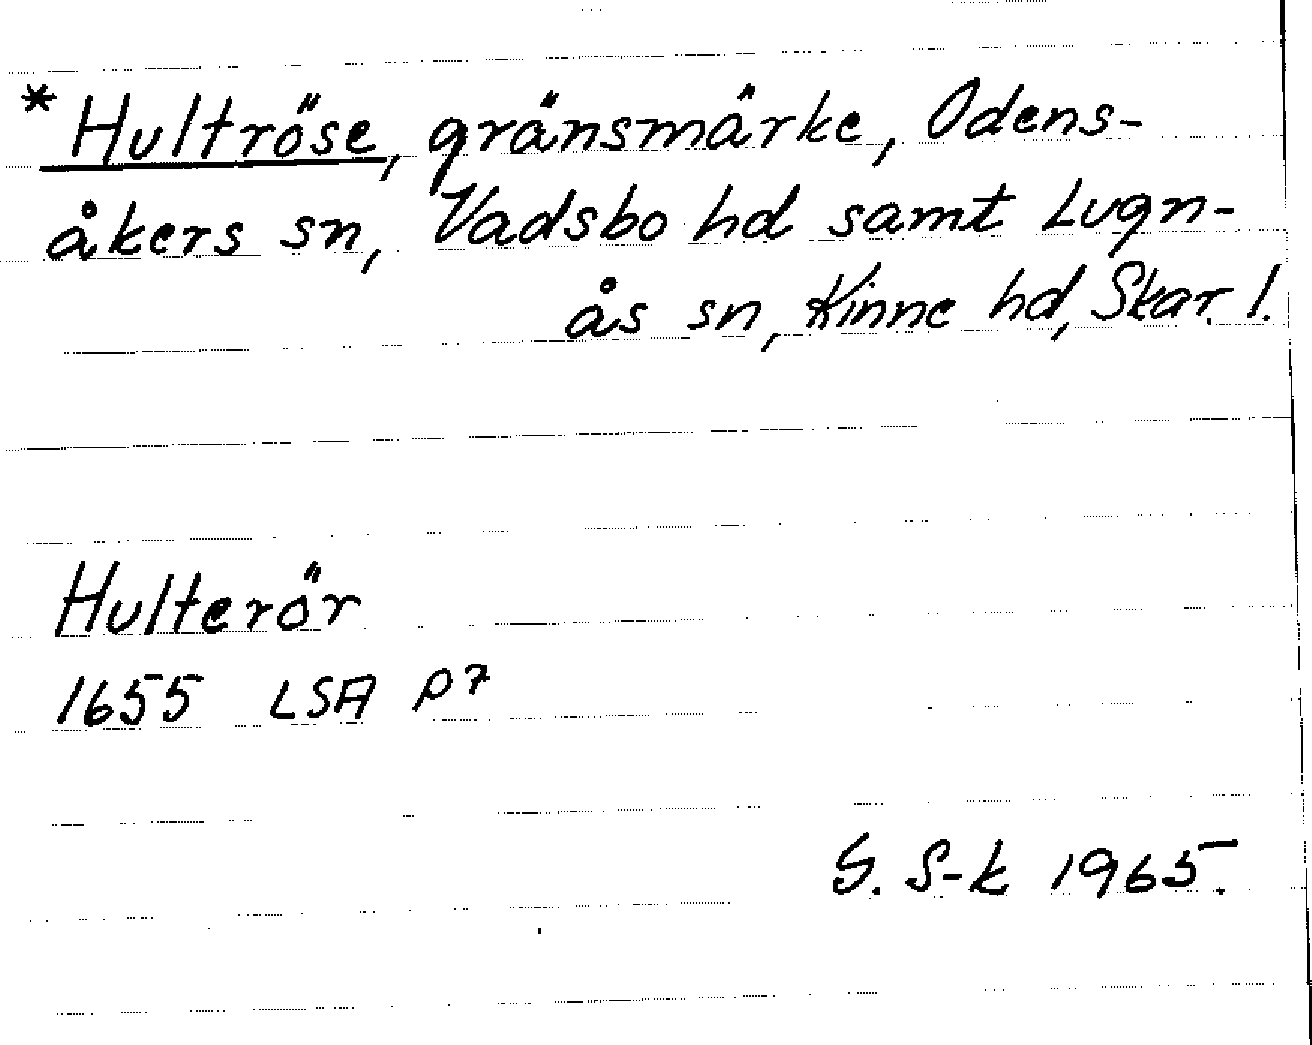 * Hultröse, gränsmärke, Odens-
åkers sn, Vadsbo hd samt Lugn-
ås sn, Kinne hd, Skar. l.
Hulterör
1655 LSA P7
G. S-k 1965.